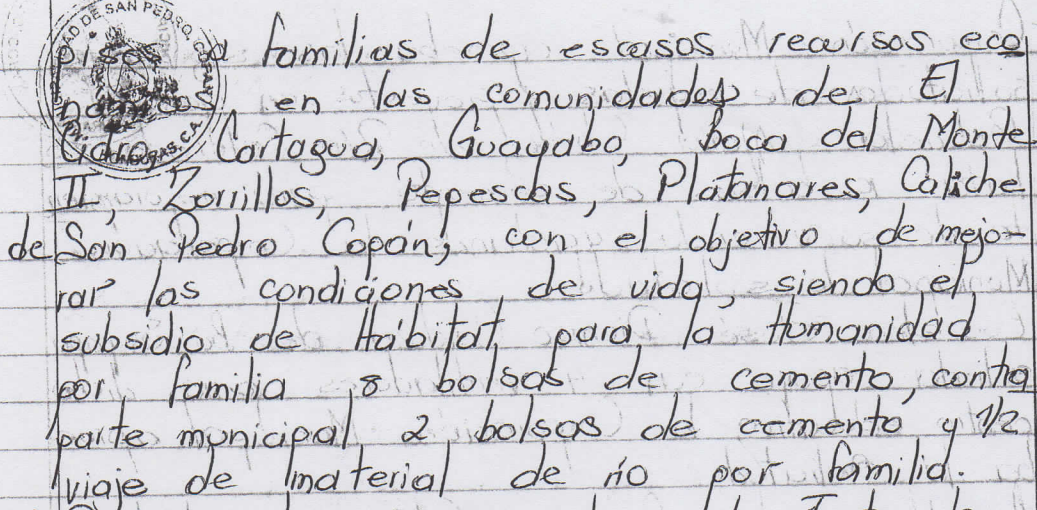 pisos a familias de escasos recursos eco
nómicos en las comunidades de El
Cartagua, Guayabo, Boca del Monte
II, Zorrillos, Pepescas, Platanares, Caliche
de San Pedro Copán; con el objetivo de mejo-
rar las condiciones de vida, siendo el
subsidio de Hábitat para la Humanidad
por familia 8 bolsas de cemento, contra
parte municipal 2 bolsas de cemento y 1/2
viaje de material de río por familia.